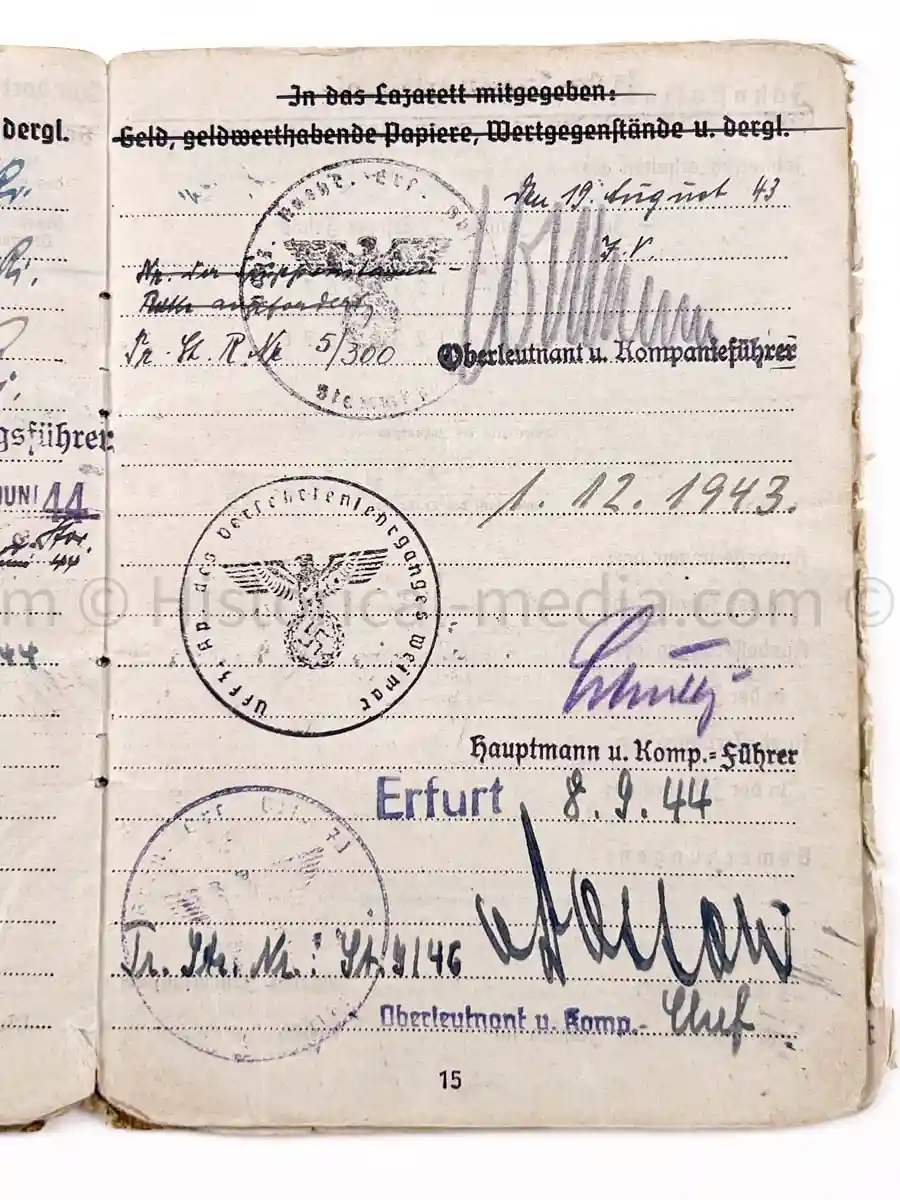 dergl.
In das Lazarett mitgegeben:
Geld, geldwerthabende Papiere, Wertgegenstände u. dergl.
Den 19. August 43
Nr. der Truppenstamm-
Rolle angefordert
Tr. St. R. Nr 5/300
Oberleutnant u. Kompanieführer
gsführer
JUNI 44
1. 12. 1943.
Uffz. Kp des Versehrtenlehrganges Weimar
© Historical-media.com ©
Hauptmann u. Komp.=Führer
Erfurt 8. 9. 44
Tr. Str. Nr.: St. 9146
Oberleutnant u. Komp.- Chef
15